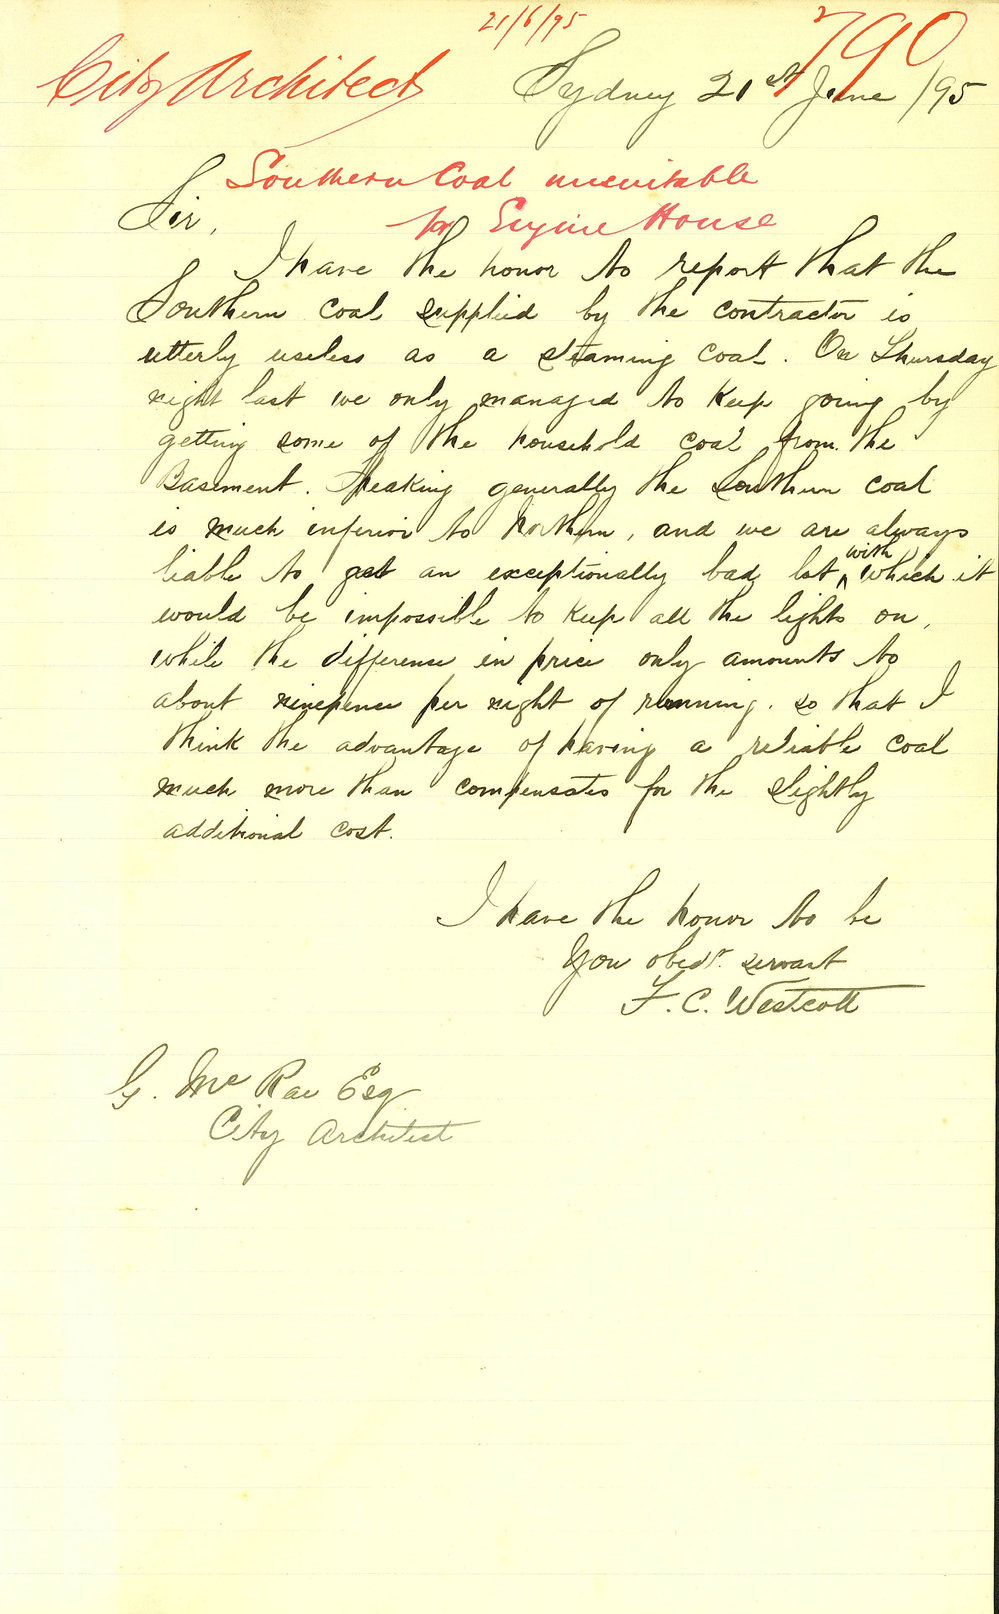 21/6/95
790
City Architect
Sydney 21st June /95
Southern Coal unsuitable
for Engine House
Sir,
I have the honor to report that the
Southern coal supplied by the contractor is
utterly useless as a steaming coal. On Thursday
night last we only managed to keep going by
getting some of the household coal from the
Basement. Speaking generally the Southern coal
is much inferior to Northern, and we are always
liable to get an exceptionally bad lot with which it
would be impossible to keep all the lights on,
while the difference in price only amounts to
about ninepence per night of running. so that I
think the advantage of having a reliable coal
much more than compensates for the slightly
additional cost.
I have the honor to be
Your obedt. servant
F. C. Westcott
G. Mc Rae Esq
City Architect